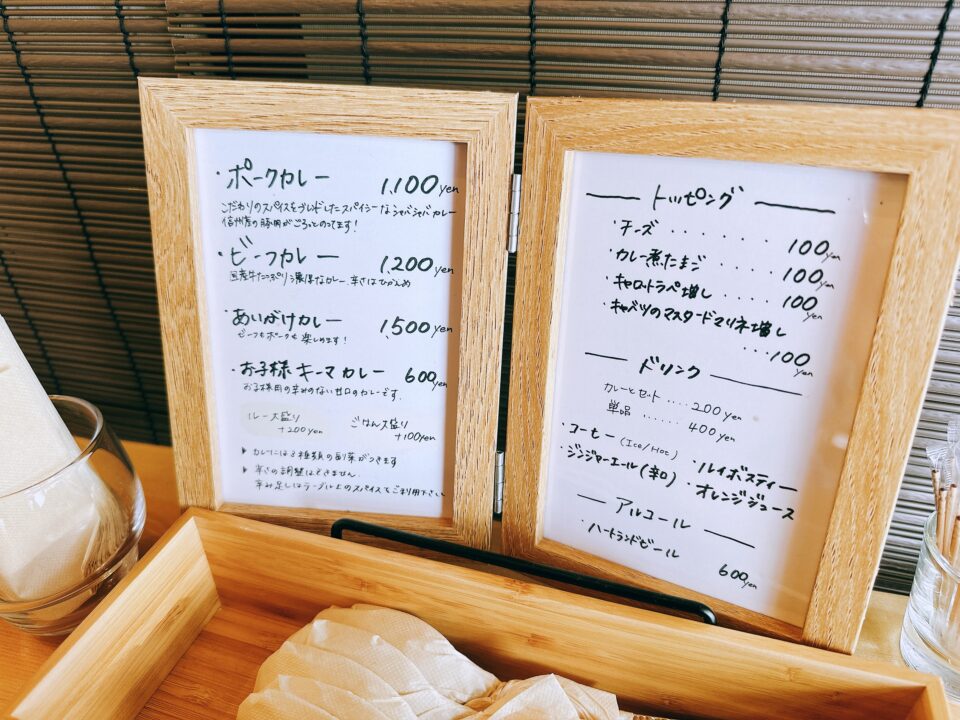 ・ポークカレー 1,100yen
こだわりのスパイスをブレンドしたスパイシーなシャバシャバカレー
信州産の豚肉がごろっとのってます!
・ビーフカレー 1,200yen
国産牛たっぷり濃厚なカレー、辛さはひかえめ
・あいがけカレー 1,500yen
ビーフもポークも楽しめます!
・お子様キーマカレー 600yen
お子様用の辛みのない甘口のカレーです。
ルー大盛り +200yen
ごはん大盛り +100yen
▶ カレーには3種類の副菜がつきます
▶ 辛さの調整はできません
辛み足しはテーブル上のスパイスをご利用下さい
トッピング
・チーズ ・・・・・・・ 100yen
・カレー煮たまご ・・・・・ 100yen
・キャロットラペ増し ・・・・ 100yen
・キャベツのマスタードマリネ増し
・・・100yen
ドリンク
カレーとセット ・・・・ 200yen
単品 ・・・・・・ 400yen
・コーヒー (Ice/Hot) ・ルイボスティー
・ジンジャーエール(辛口) ・オレンジジュース
アルコール
・ハートランドビール
600yen